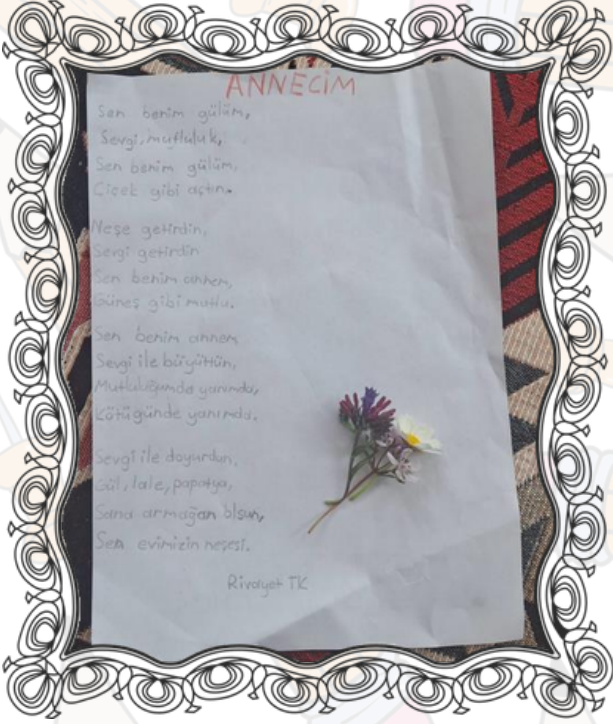 ANNECİM
Sen benim gülüm,
Sevgi, mutluluk,
Sen benim gülüm,
Çicek gibi açtın.
Neşe getirdin,
Sevgi getirdin
Sen benim annem,
Güneş gibi mutlu.
Sen benim annem
Sevgi ile büyüttün,
Mutluluğumda yanımda,
Kötü günde yanımda.
Sevgi ile doyurdun,
Gül, lale, papatya,
Sana armağan olsun,
Sen evimizin neşesi.
Rivayet TK